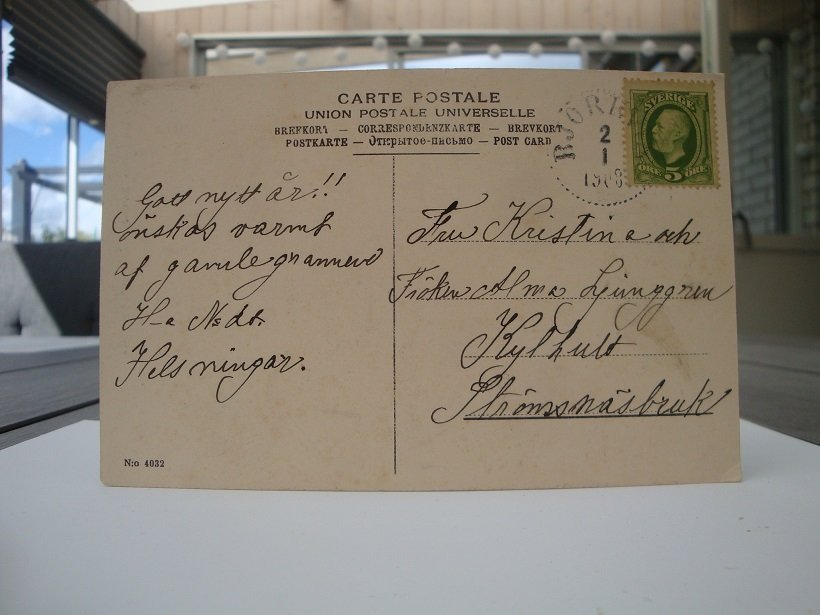 CARTE POSTALE
UNION POSTALE UNIVERSELLE
BREFKORT — CORRESPONDENZKARTE — BREVKORT
POSTKARTE — Открытое-письмо — POST CARD
BJÖR
2
1
1908
SVERIGE
ÖRE 5 ÖRE
Gott nytt år!!
önskas varmt
af gamle grannen
H-a
Helsningar.
Fru Kristina och
Fröken Alma Ljunggren
Kylhult
Strömsnäsbruk
N:o 4032